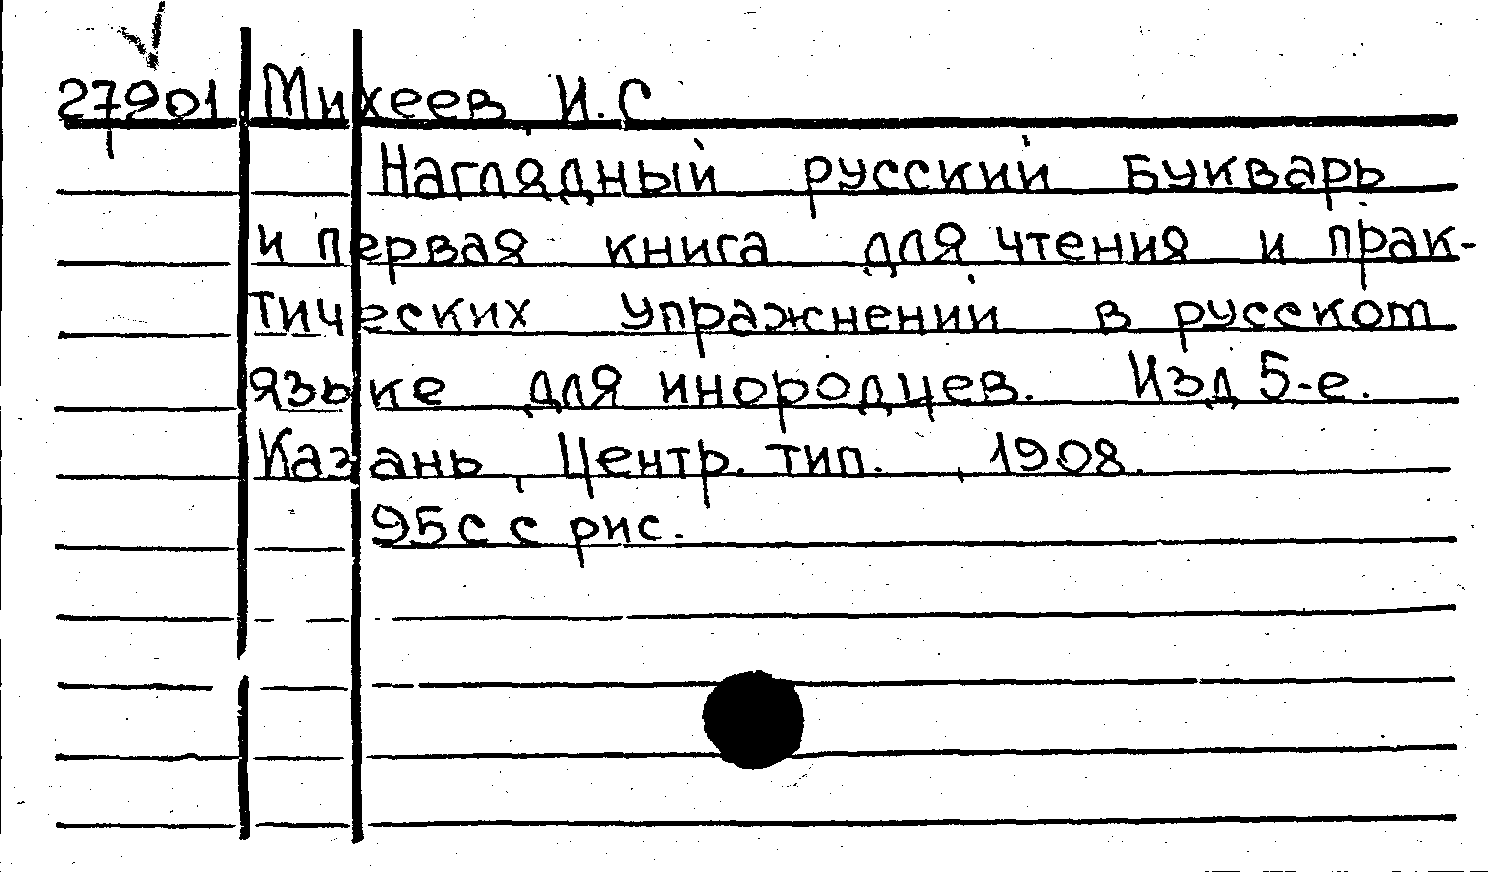 27901 Михеев, И.С.
Наглядный русский Букварь
и первая книга для чтения и прак-
тических упражнений в русском
языке для инородцев. Изд 5-е.
Казань, Центр. тип., 1908.
95с с рис.